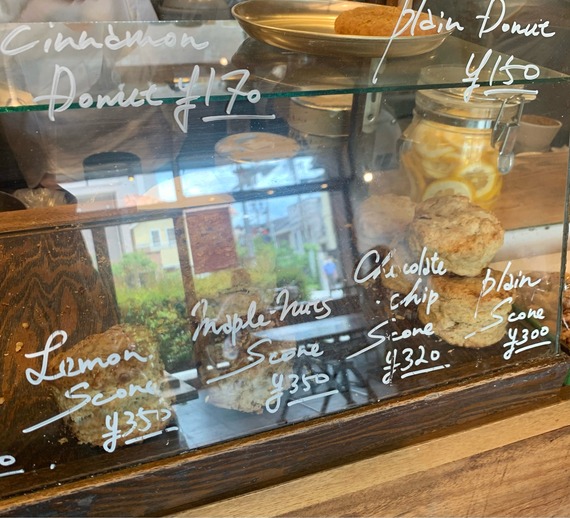 Cinnamon
Donut ¥170
plain Donut
¥150
Lemon
Scone
¥350
Maple Nuts
Scone
¥350
Chocolate
chip
Scone
¥320
plain
Scone
¥300